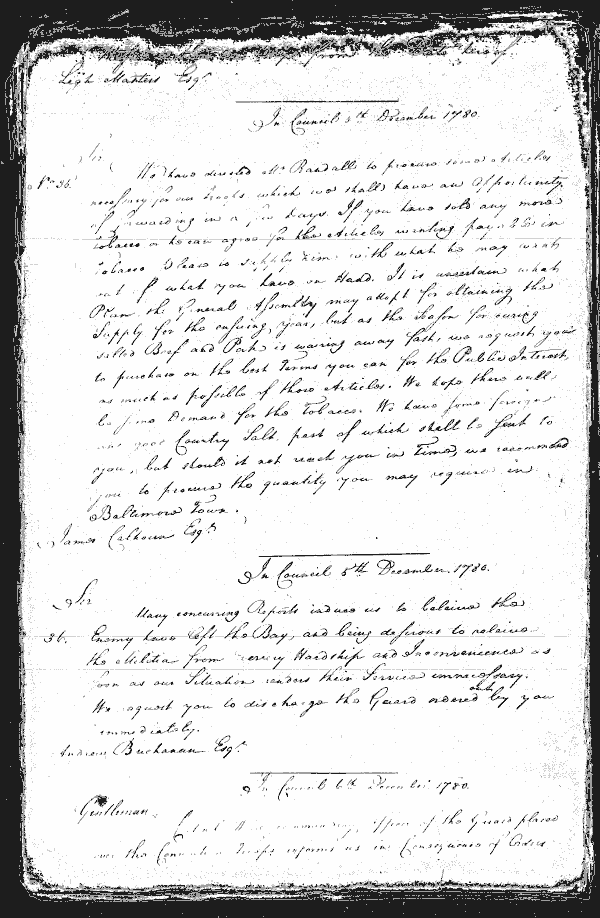 from the Date hereof.
Leigh Masters Esqr.
In Council 5th December 1780.
Sir
No. 36. We have directed Mr. Randall to procure some Articles
necessary for our Troops which we shall have an Opportunity
of forwarding in a few days. If you have sold any more
Tobacco or he can agree for the Articles wanting payable in
Tobacco Please to supply him with what he may want
out of what you have on Hand. It is uncertain what
Plan the General Assembly may adopt for obtaining the
Supply for the ensuing year, but as the Season for curing
salted Beef and Pork is wearing away fast, we request you
to purchase on the best Terms you can for the Public Interest,
as much as possible of those Articles. We hope there will
be some Demand for the Tobacco. We have some foreign
and good Country Salt, part of which shall be sent to
you, but should it not reach you in Time, we recommend
you to procure the quantity you may require in
Baltimore Town.
James Calhoun Esqr.
In Council 5th December 1780.
Sir
Many concurring Reports induce us to beleive the
36. Enemy have left the Bay, and being desirous to releive
the Militia from every Hardship and Inconvenience as
soon as our Situation renders their Service unnecessary.
We request you to discharge the Guard ordered out by you
immediately.
Andrew Buchanan Esqr.
In Council 6th December 1780.
Gentlemen,
commanding officer of the Guard placed
over the Convention Troops informs us in Consequence of Orders